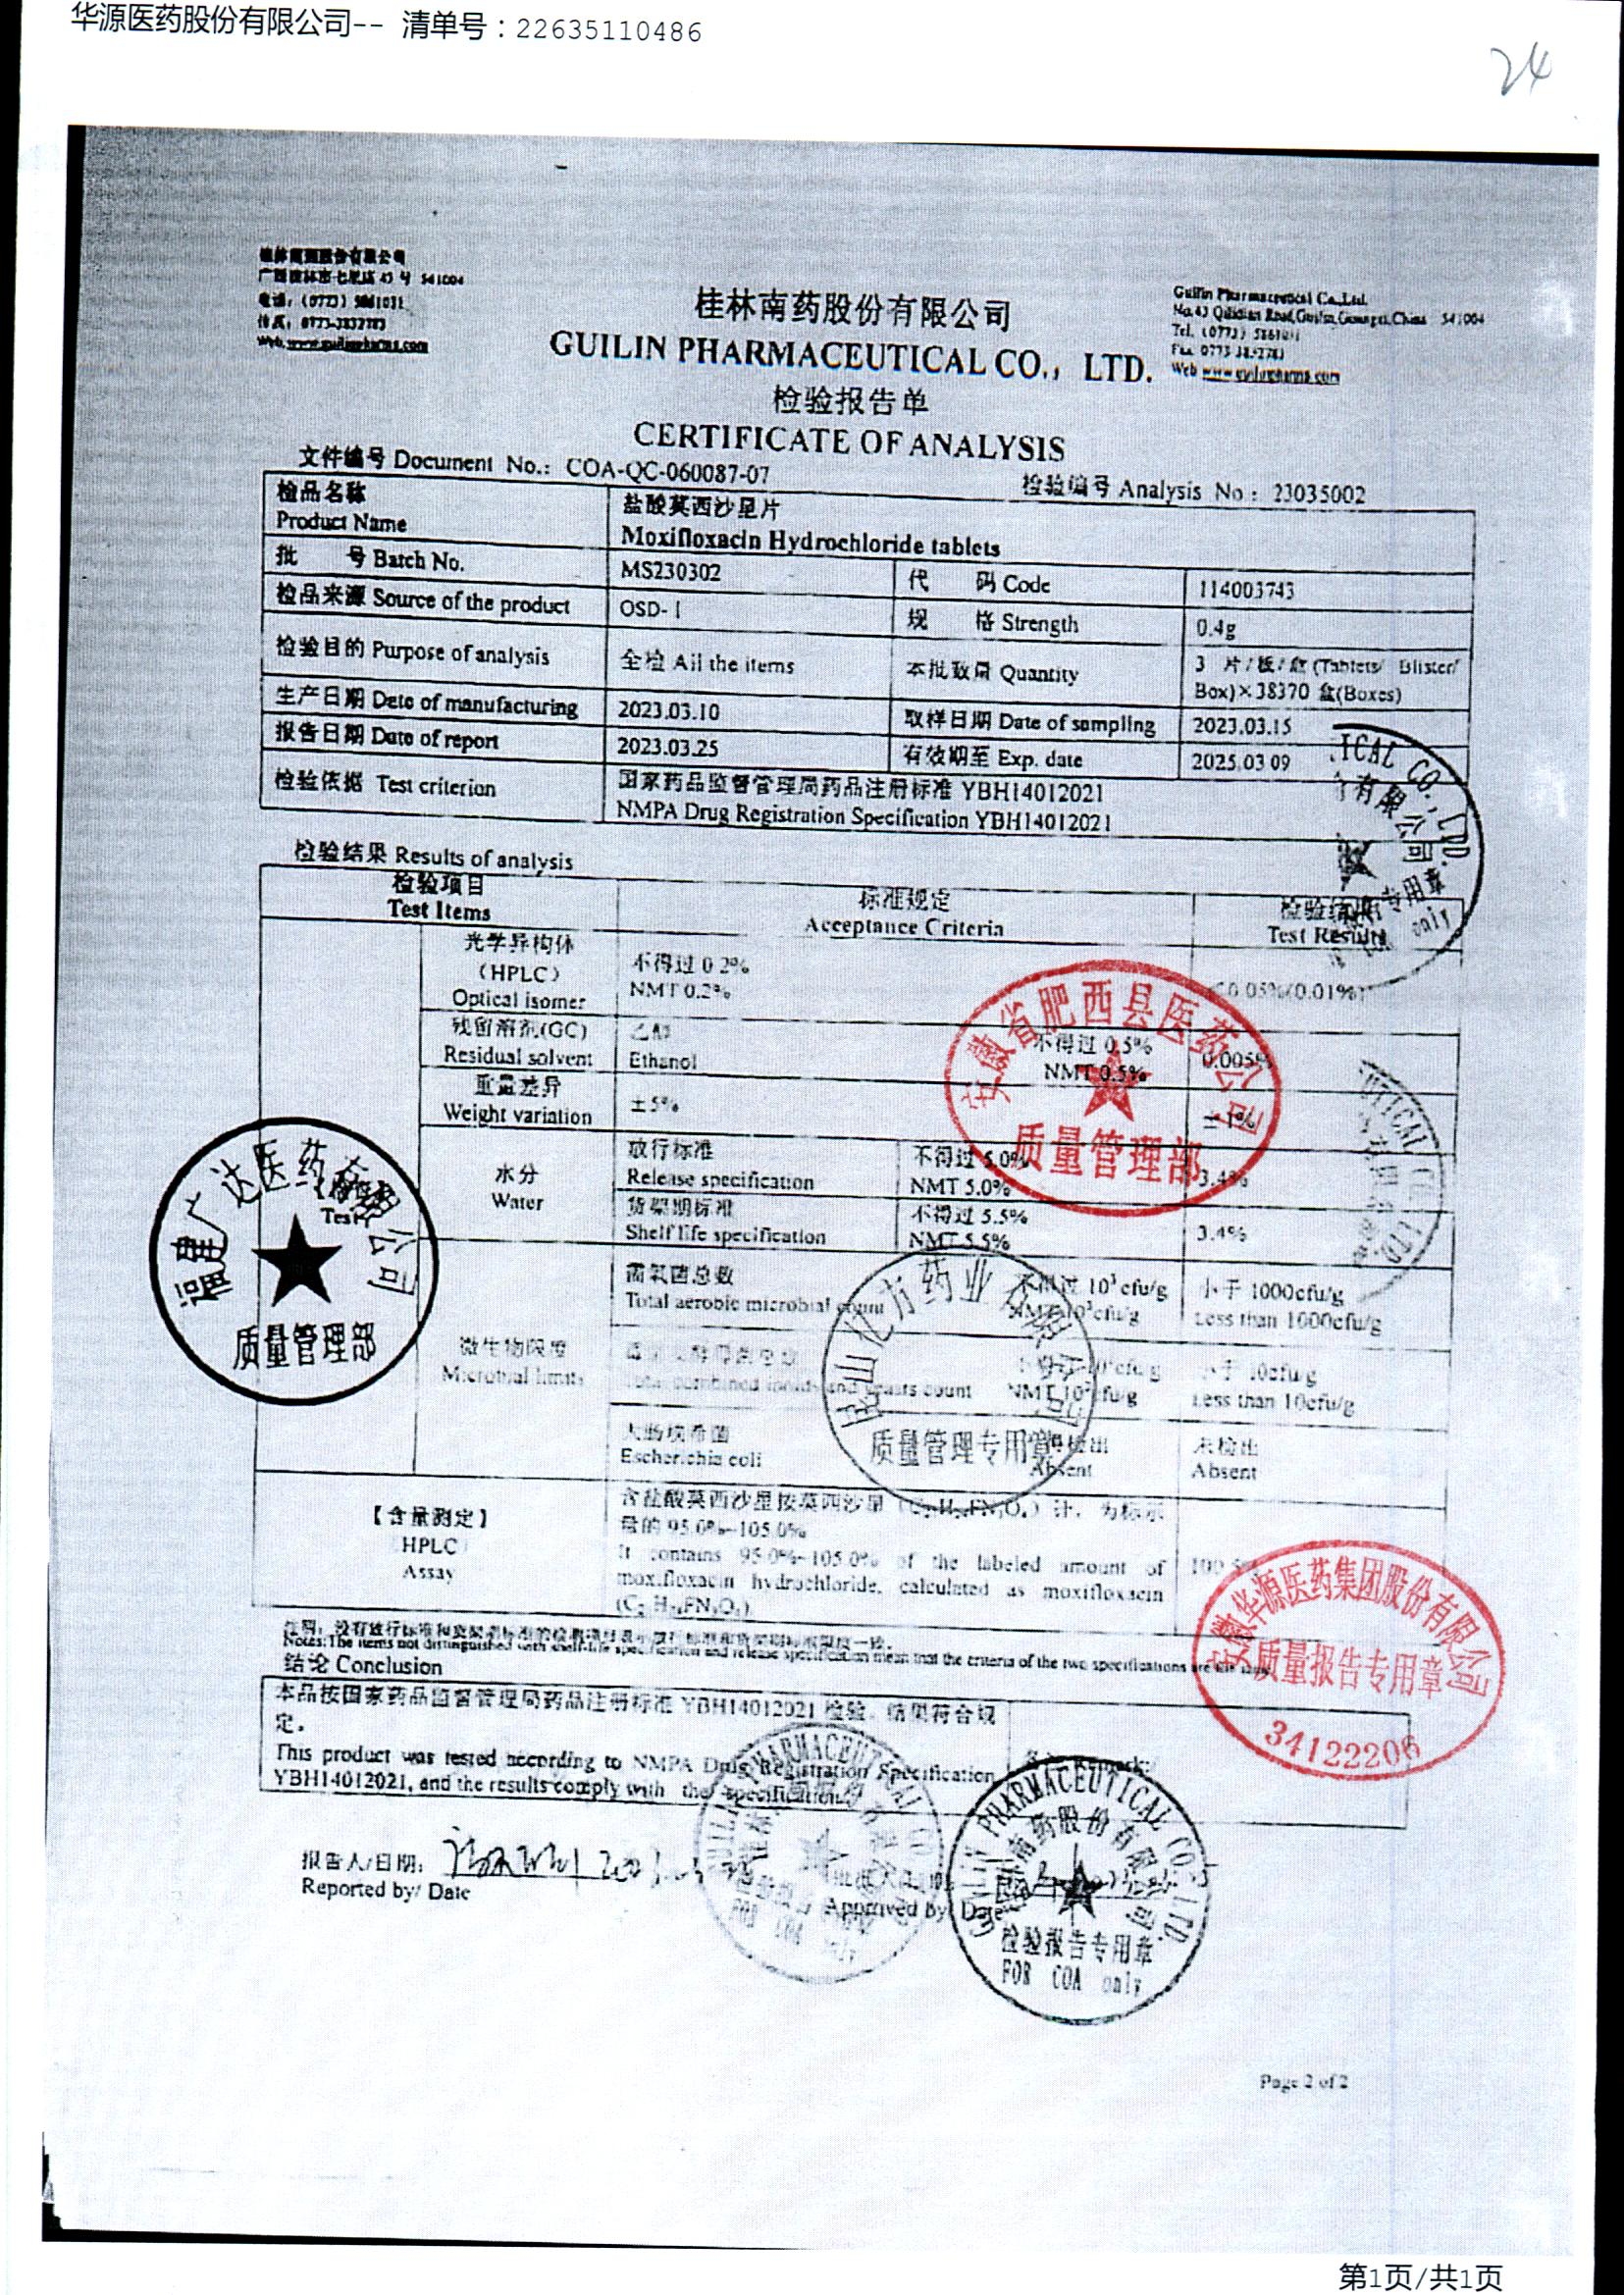 华源医药股份有限公司-- 清单号：22635110486
24
桂林南药股份有限公司
广西桂林市七里店 43 号 541004
电话：(0773) 5861031
传真：0773-3832783
Web.www.guilinpharma.com
Guilin Pharmaceutical Co.,Ltd.
No.43 Qilidian Road,Guilin,Guangxi,China 541004
Tel. (0773)
Fax 0773
Web www.guilinpharma.com
桂林南药股份有限公司
GUILIN PHARMACEUTICAL CO., LTD.
检验报告单
CERTIFICATE OF ANALYSIS
文件编号 Document No.: COA-QC-060087-07
检验编号 Analysis No : 23035002
检品名称 盐酸莫西沙星片
Product Name Moxifloxacin Hydrochloride tablets
批 号 Batch No. MS230302 代 码 Code 114003743
检品来源 Source of the product OSD-1 规 格 Strength 0.4g
检验目的 Purpose of analysis 全检 All the items 本批数量 Quantity 3 片/板/盒(Tablets/ Blister/
Box)×38370 盒(Boxes)
生产日期 Date of manufacturing 2023.03.10 取样日期 Date of sampling 2023.03.15
报告日期 Date of report 2023.03.25 有效期至 Exp. date 2025.03.09
检验依据 Test criterion 国家药品监督管理局药品注册标准 YBH14012021
NMPA Drug Registration Specification YBH14012021
检验结果 Results of analysis
检验项目 标准规定 检验结果
Test Items Acceptance Criteria Test Results
光学异构体
(HPLC)
Optical isomer
不得过 0.2%
NMT 0.2%
0.05%(0.01%)
残留溶剂(GC)
Residual solvent
乙醇 不得过 0.5%
Ethanol NMT 0.5%
0.005%
重量差异
Weight variation
±5%
±1%
水分
Water
放行标准 不得过 5.0%
Release specification NMT 5.0%
3.4%
货架期标准 不得过 5.5%
Shelf life specification NMT 5.5%
3.4%
Test
微生物限度
Microbial limits
需氧菌总数 不得过 10³cfu/g 小于 1000cfu/g
Total aerobic microbial count NMT 10³cfu/g Less than 1000cfu/g
霉菌及酵母菌总数 不得过 10²cfu/g 小于 10cfu/g
Total combined molds and yeasts count NMT 10²cfu/g Less than 10cfu/g
大肠埃希菌 不得检出 未检出
Escherichia coli Absent Absent
【含量测定】
HPLC
Assay
含盐酸莫西沙星按莫西沙星（C₂₁H₂₄FN₃O₄）计，为标示
量的 95.0%~105.0%
It contains 95.0%~105.0% of the labeled amount of
moxifloxacin hydrochloride, calculated as moxifloxacin
(C₂₁H₂₄FN₃O₄)
100.5%
注释：没有放行标准和货架期标准的检测项目表示放行标准和货架期标准限度一致。
Notes:The items not distinguished with shelf-life specification and release specification mean that the criteria of the two specifications are the same.
结论 Conclusion
本品按国家药品监督管理局药品注册标准 YBH14012021 检验，结果符合规
定。
This product was tested according to NMPA Drug Registration Specification
YBH14012021, and the results comply with the specification.
报告人/日期:
Reported by/ Date
Approved by/ Date
Page 2 of 2
ICAL CO., LTD.
有限公司
专用章
only
安徽省肥西县医药公司
质量管理部
福建广达医药有限公司
质量管理部
昆山亿方药业有限公司
质量管理专用章
安徽华源医药集团股份有限公司
质量报告专用章
34122206
GUILIN PHARMACEUTICAL CO., LTD.
桂林南药股份有限公司
检验报告专用章
FOR COA only
第1页/共1页